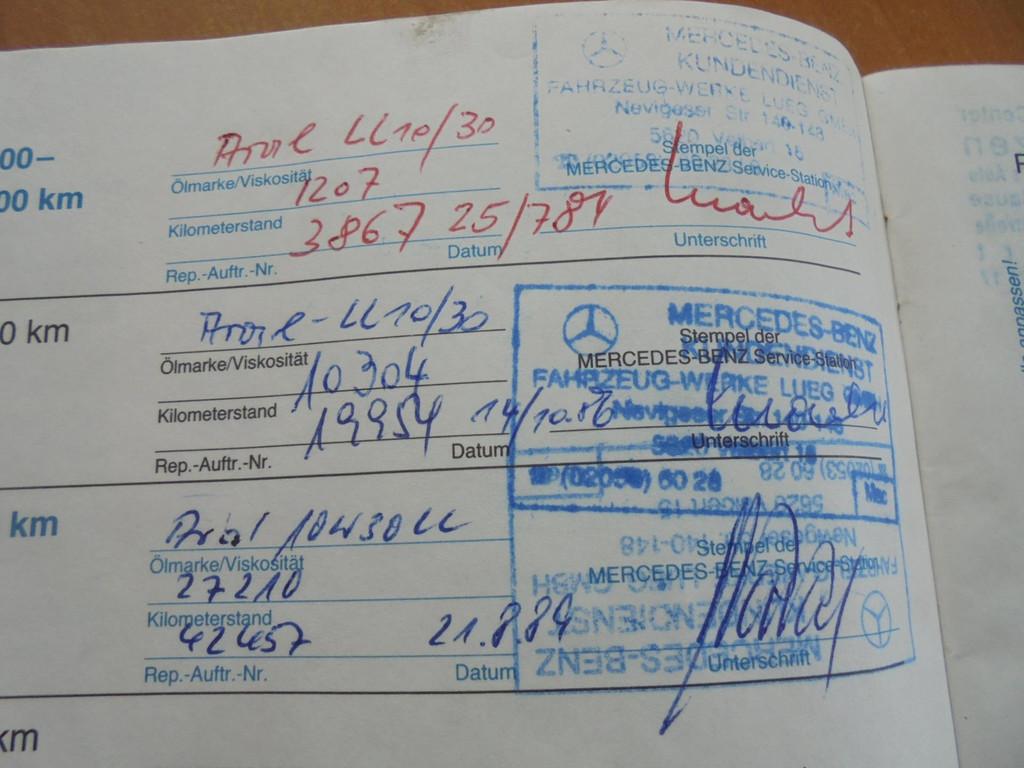 MERCEDES-BENZ
KUNDENDIENST
FAHRZEUG-WERKE LUEG GMBH
Nevigeser Str 140-148
5620 Velbert 15
00–
00 km
Aral LL 10/30
Ölmarke/Viskosität
1207
Kilometerstand
3867 25/7 84
Rep.-Auftr.-Nr. Datum
Stempel der
MERCEDES-BENZ Service-Station
Unterschrift
0 km
Aral-LL 10/30
Ölmarke/Viskosität
10304
Kilometerstand
19954 14/10.86
Rep.-Auftr.-Nr. Datum
MERCEDES-BENZ
KUNDENDIENST
FAHRZEUG-WERKE LUEG GMBH
Nevigeser Str. 140-148
5620 Velbert 15
(02053) 60 28
Stempel der
MERCEDES-BENZ Service-Station
Unterschrift
km
Aral 10W30 LL
Ölmarke/Viskosität
27210
Kilometerstand
42457 21.8.89
Rep.-Auftr.-Nr. Datum
(02053) 60 28
5620 Velbert 15
Nevigeser Str. 140-148
FAHRZEUG-WERKE LUEG GMBH
KUNDENDIENST
MERCEDES-BENZ
Stempel der
MERCEDES-BENZ Service-Station
Unterschrift
km
anpassen!